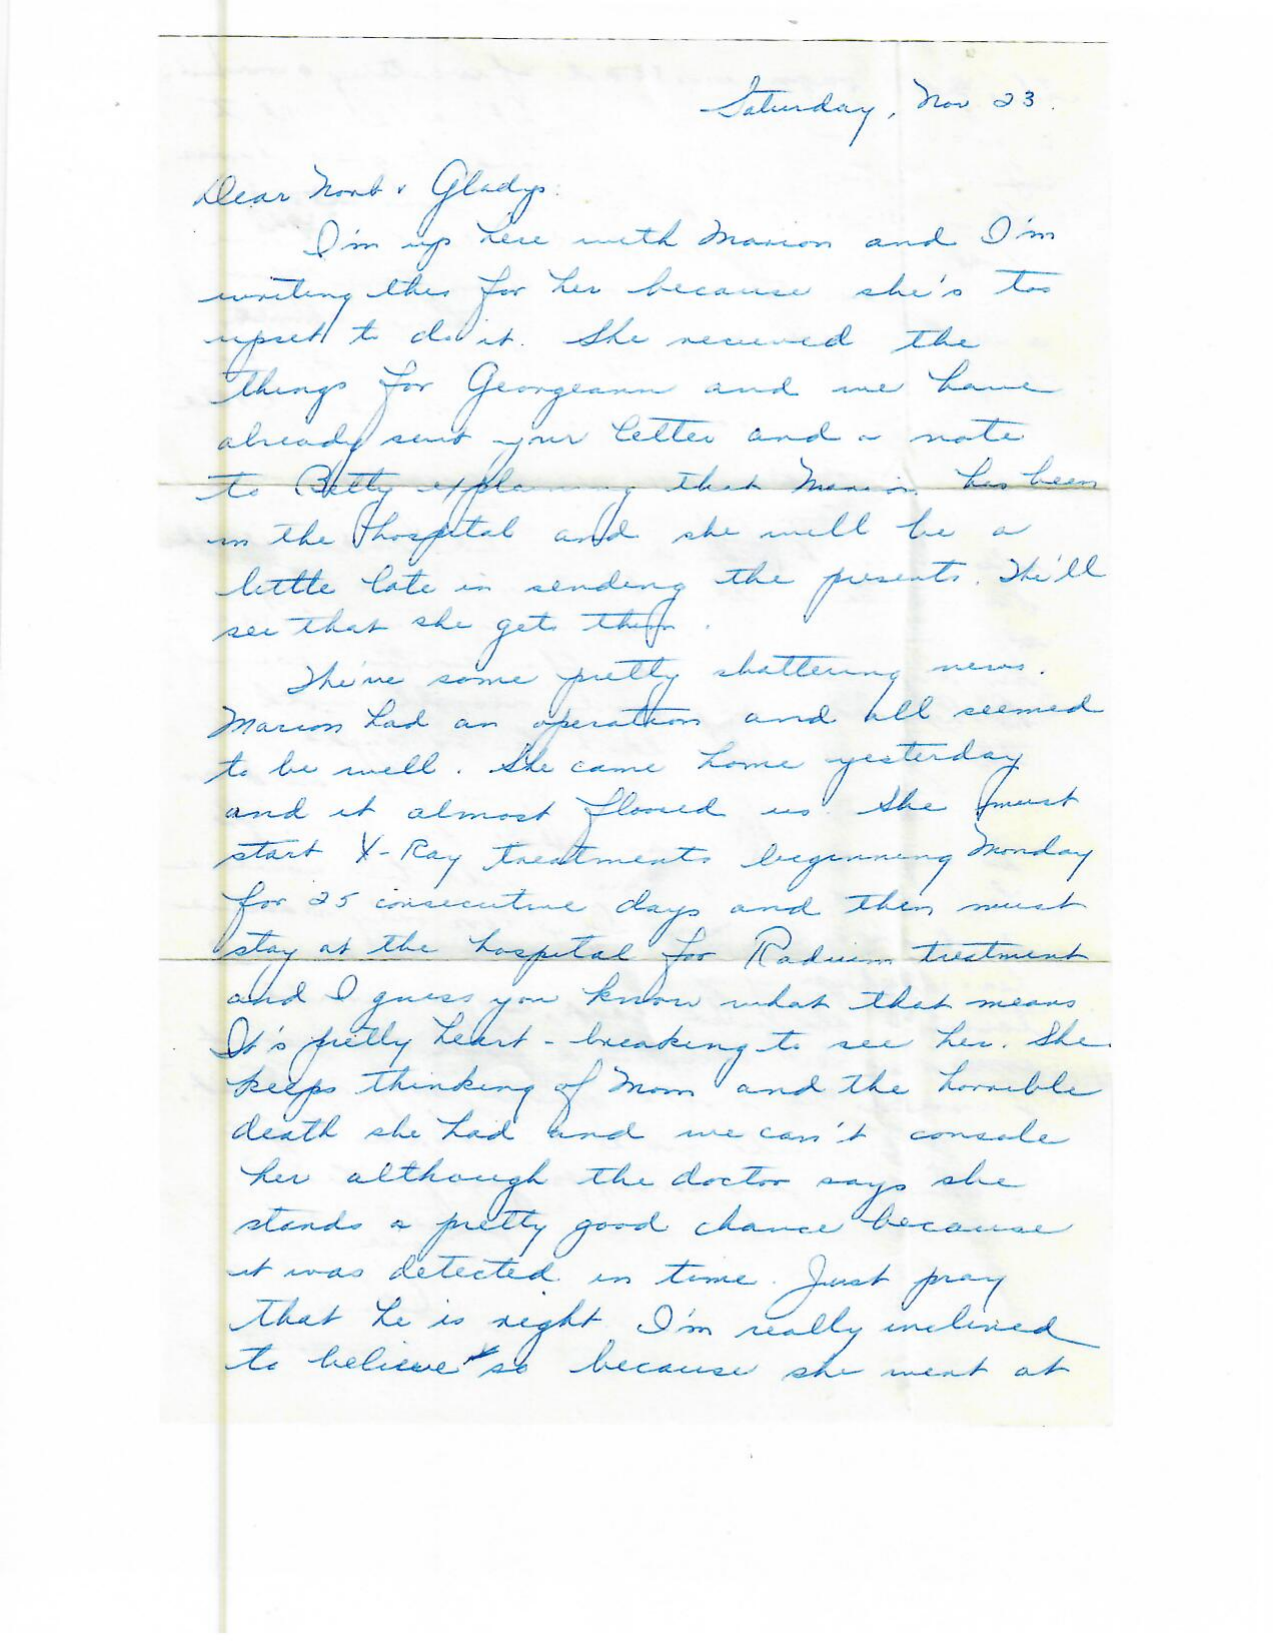 Saturday, Nov 23.
Dear Norb & Gladys:
I'm up here with Marion and I'm
writing this for her because she's too
upset to do it. She received the
things for Georgeann and we have
already sent your letter and a note
to Betty explaining that Marion has been
in the hospital and she will be a
little late in sending the presents. We'll
see that she gets them.
We've some pretty shattering news.
Marion had an operation and all seemed
to be well. She came home yesterday
and it almost floored us. She must
start X-Ray treatments beginning Monday
for 25 consecutive days and then must
stay at the hospital for Radium treatment
and I guess you know what that means
It's pretty heart-breaking to see her. She
keeps thinking of Mom and the horrible
death she had and we can't console
her although the doctor says she
stands a pretty good chance because
it was detected in time. Just pray
that he is right I'm really inclined
to believe so because she went at